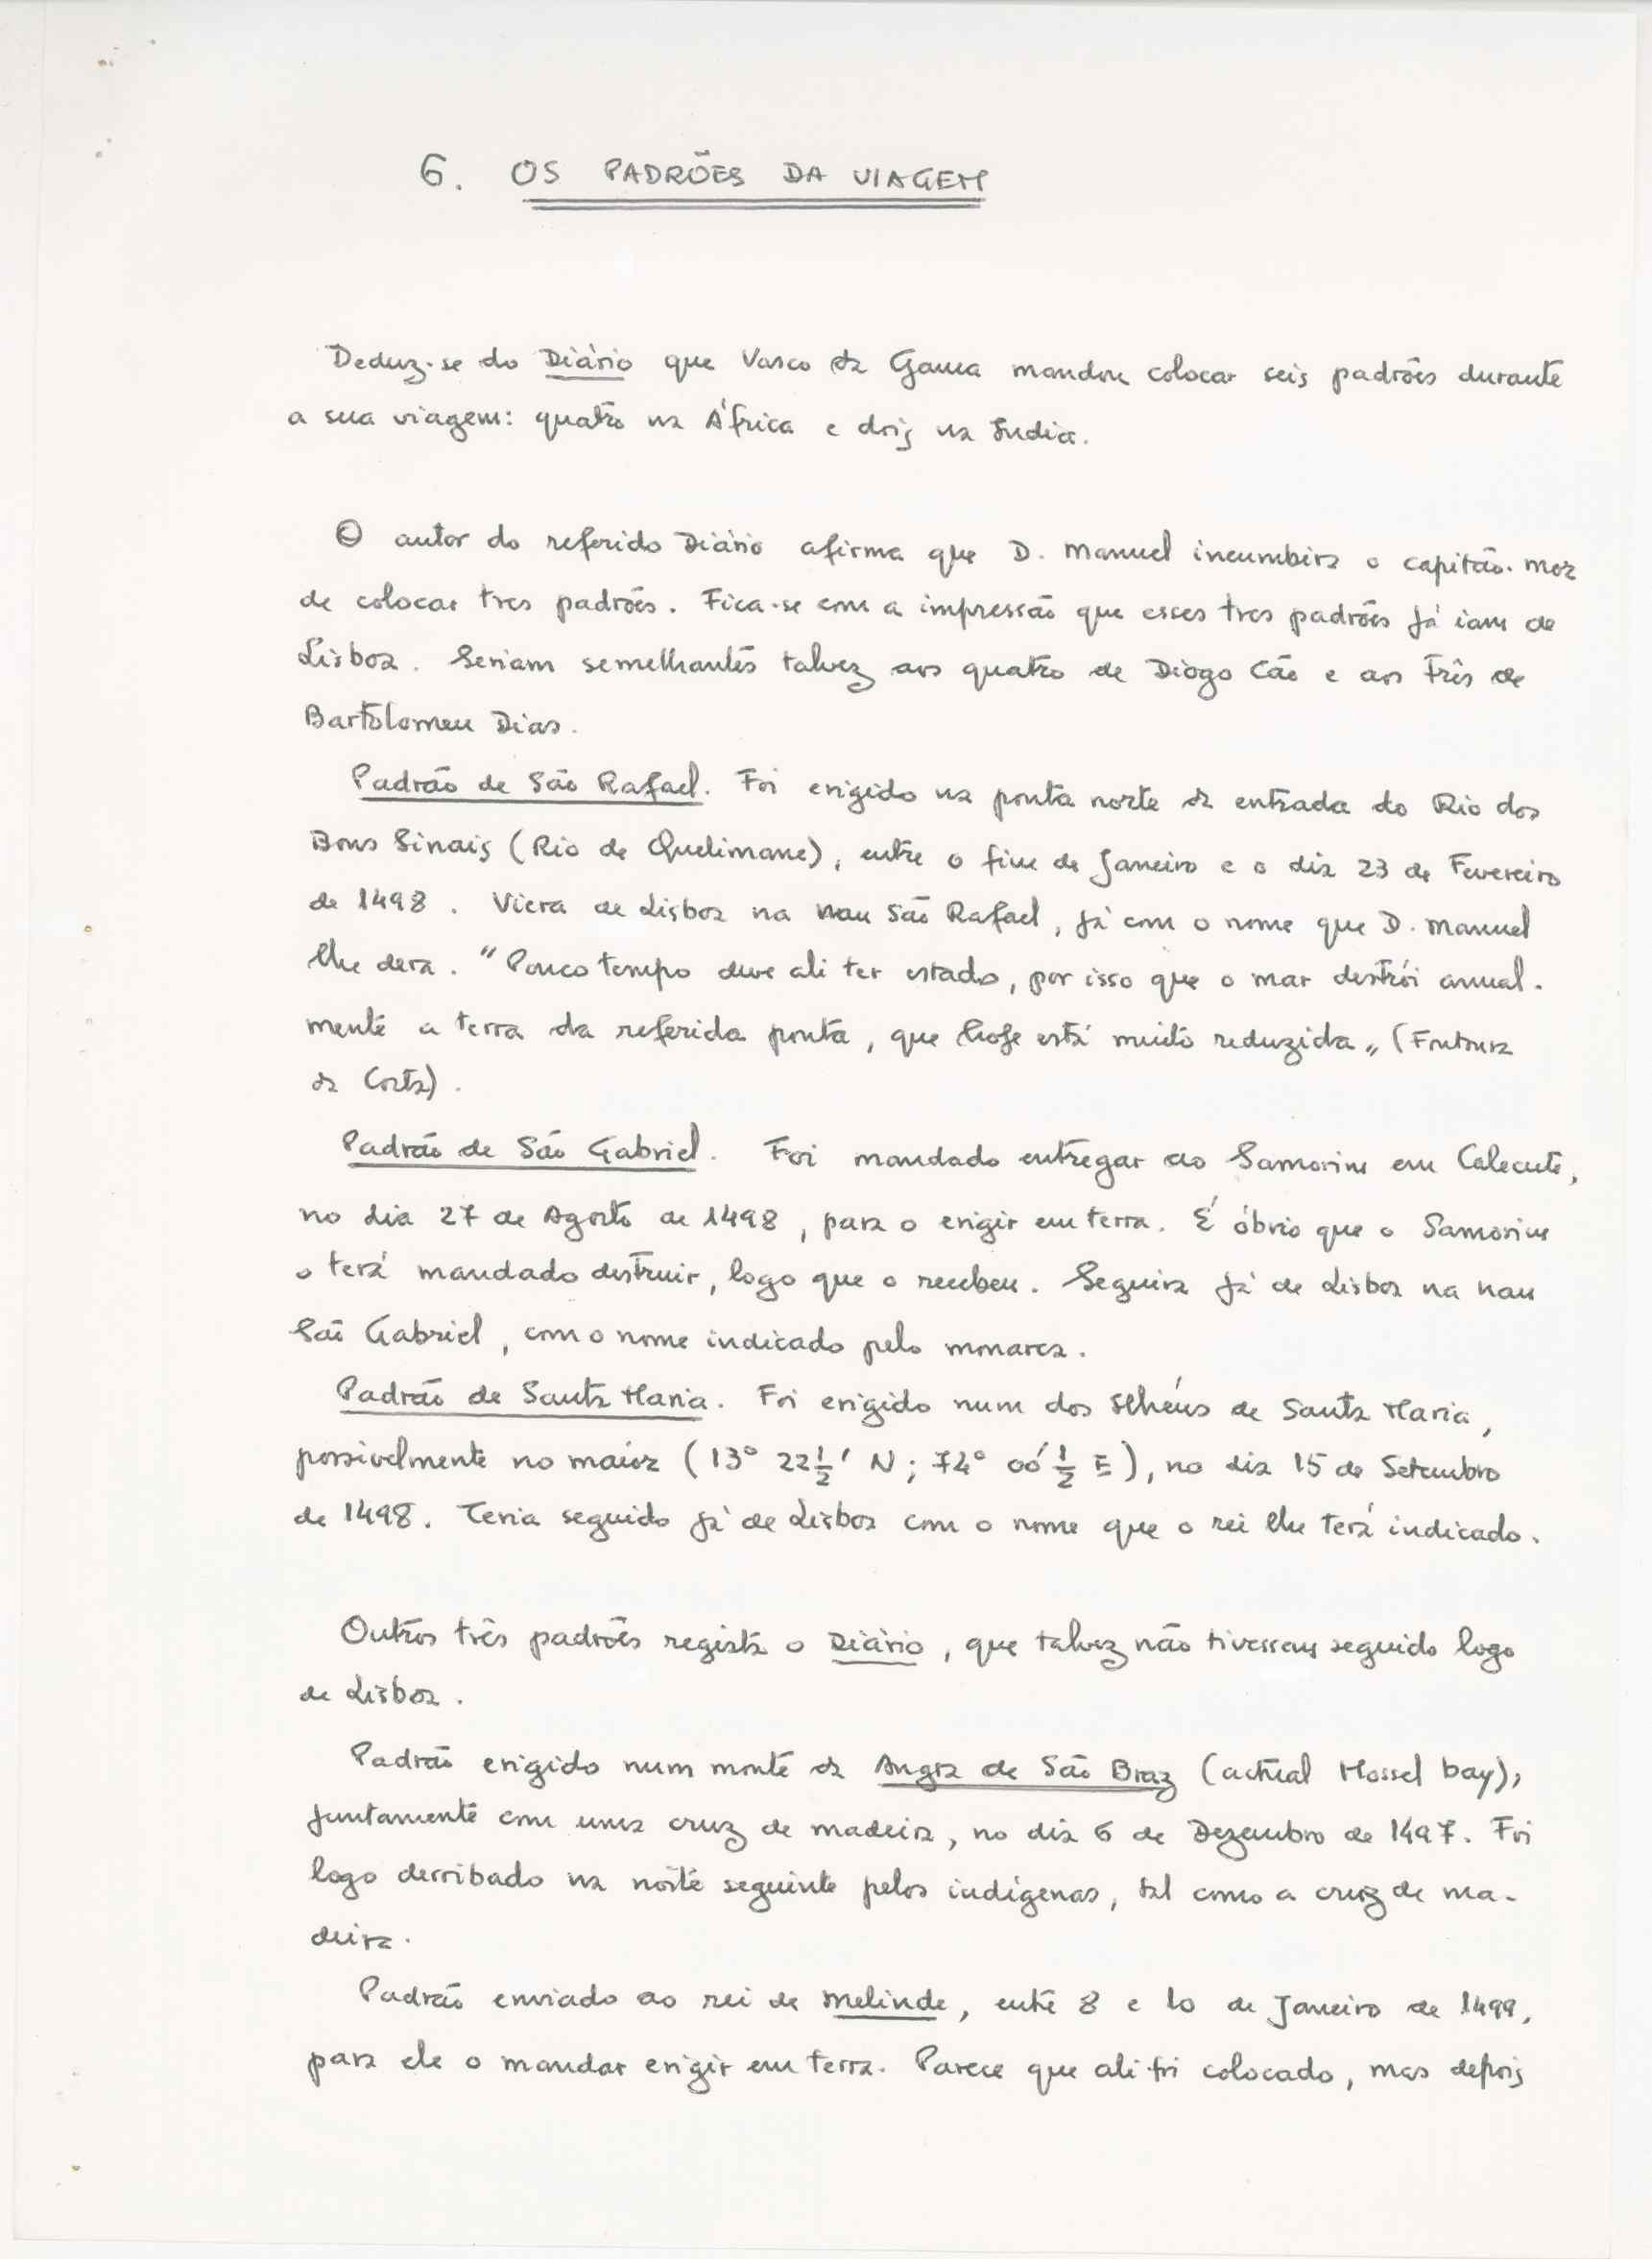 6. OS PADRÕES DA VIAGEM
Deduz-se do Diário que Vasco da Gama mandou colocar seis padrões durante
a sua viagem: quatro na África e dois na Índia.
O autor do referido Diário afirma que D. Manuel incumbira o capitão-mor
de colocar tres padrões. Fica-se com a impressão que esses tres padrões já iam de
Lisboa. Seriam semelhantes talvez aos quatro de Diogo Cão e aos três de
Bartolomeu Dias.
Padrão de São Rafael. Foi erigido na ponta norte da entrada do Rio dos
Bons Sinais (Rio de Quelimane), entre o fim de Janeiro e o dia 23 de Fevereiro
de 1498. Viera de Lisboa na nau São Rafael, já com o nome que D. Manuel
lhe dera. "Pouco tempo deve ali ter estado, por isso que o mar destrói anual-
mente a terra da referida ponta, que hoje está muito reduzida" (Fontoura
da Costa).
Padrão de São Gabriel. Foi mandado entregar ao Samorim em Calecute,
no dia 27 de Agosto de 1498, para o erigir em terra. É óbvio que o Samorim
o terá mandado destruir, logo que o recebeu. Seguira já de Lisboa na nau
São Gabriel, com o nome indicado pelo monarca.
Padrão de Santa Maria. Foi erigido num dos Ilhéus de Santa Maria,
possivelmente no maior (13° 22 1/2' N; 74° 00' 1/2 E), no dia 15 de Setembro
de 1498. Teria seguido já de Lisboa com o nome que o rei lhe terá indicado.
Outros três padrões regista o Diário, que talvez não tivessem seguido logo
de Lisboa.
Padrão erigido num monte da Angra de São Braz (actual Mossel bay),
juntamente com uma cruz de madeira, no dia 6 de Dezembro de 1497. Foi
logo derribado na noite seguinte pelos indígenas, tal como a cruz de ma-
deira.
Padrão enviado ao rei de Melinde, entre 8 e 10 de Janeiro de 1499,
para ele o mandar erigir em terra. Parece que ali foi colocado, mas depois